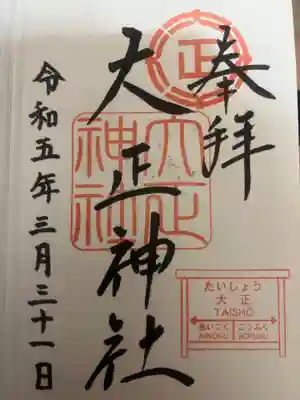 奉拝
正
大正神社
大正
神社
たいしょう
大正
TAISHO
あいこく
こうふく
AIKOKU
KOFUKU
令和五年三月三十一日